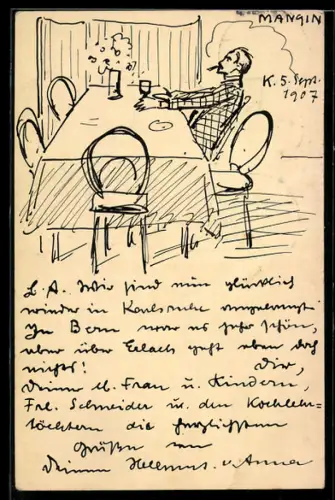 MANGIN
K. 5. Sept.
1907
L. A. Wir sind nun glücklich
wieder in Karlsruhe angelangt!
In Bern war es sehr schön,
aber über Erlach geht eben doch
nichts! Dir,
Deiner l. Frau u. Kindern,
Frl. Schneider u. den Kochlehr-
töchtern die herzlichsten
Grüße von
Deinem Helmut u. Anna